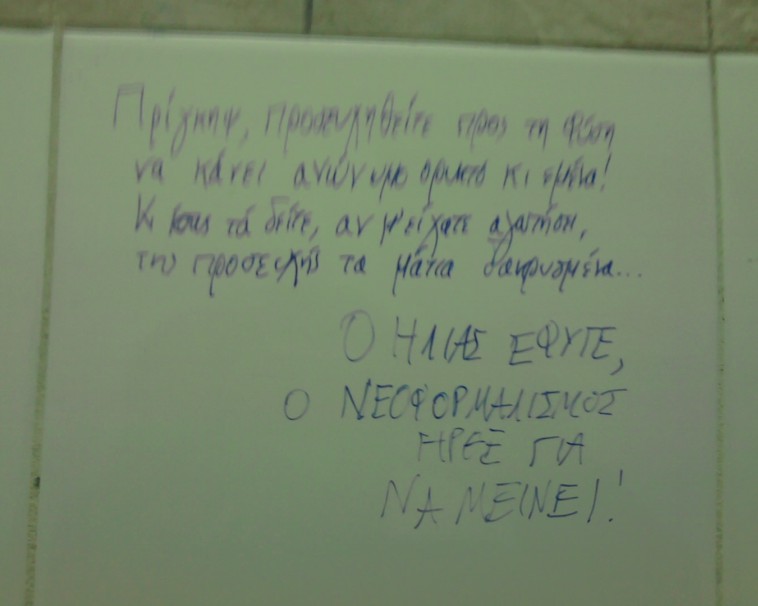 Πρίγκηψ, προσευχηθείτε προς τη φύση
να κάνει ανώνυμο ορυκτό κι εμένα!
Κι ίσως τά δείτε, αν μ' είχατε αγαπήσει,
της προσευχής τα μάτια δακρυσμένα...
Ο ΗΛΙΑΣ ΕΦΥΓΕ,
Ο ΝΕΟΦΟΡΜΑΛΙΣΜΟΣ
ΗΡΘΕ ΓΙΑ
ΝΑ ΜΕΙΝΕΙ!